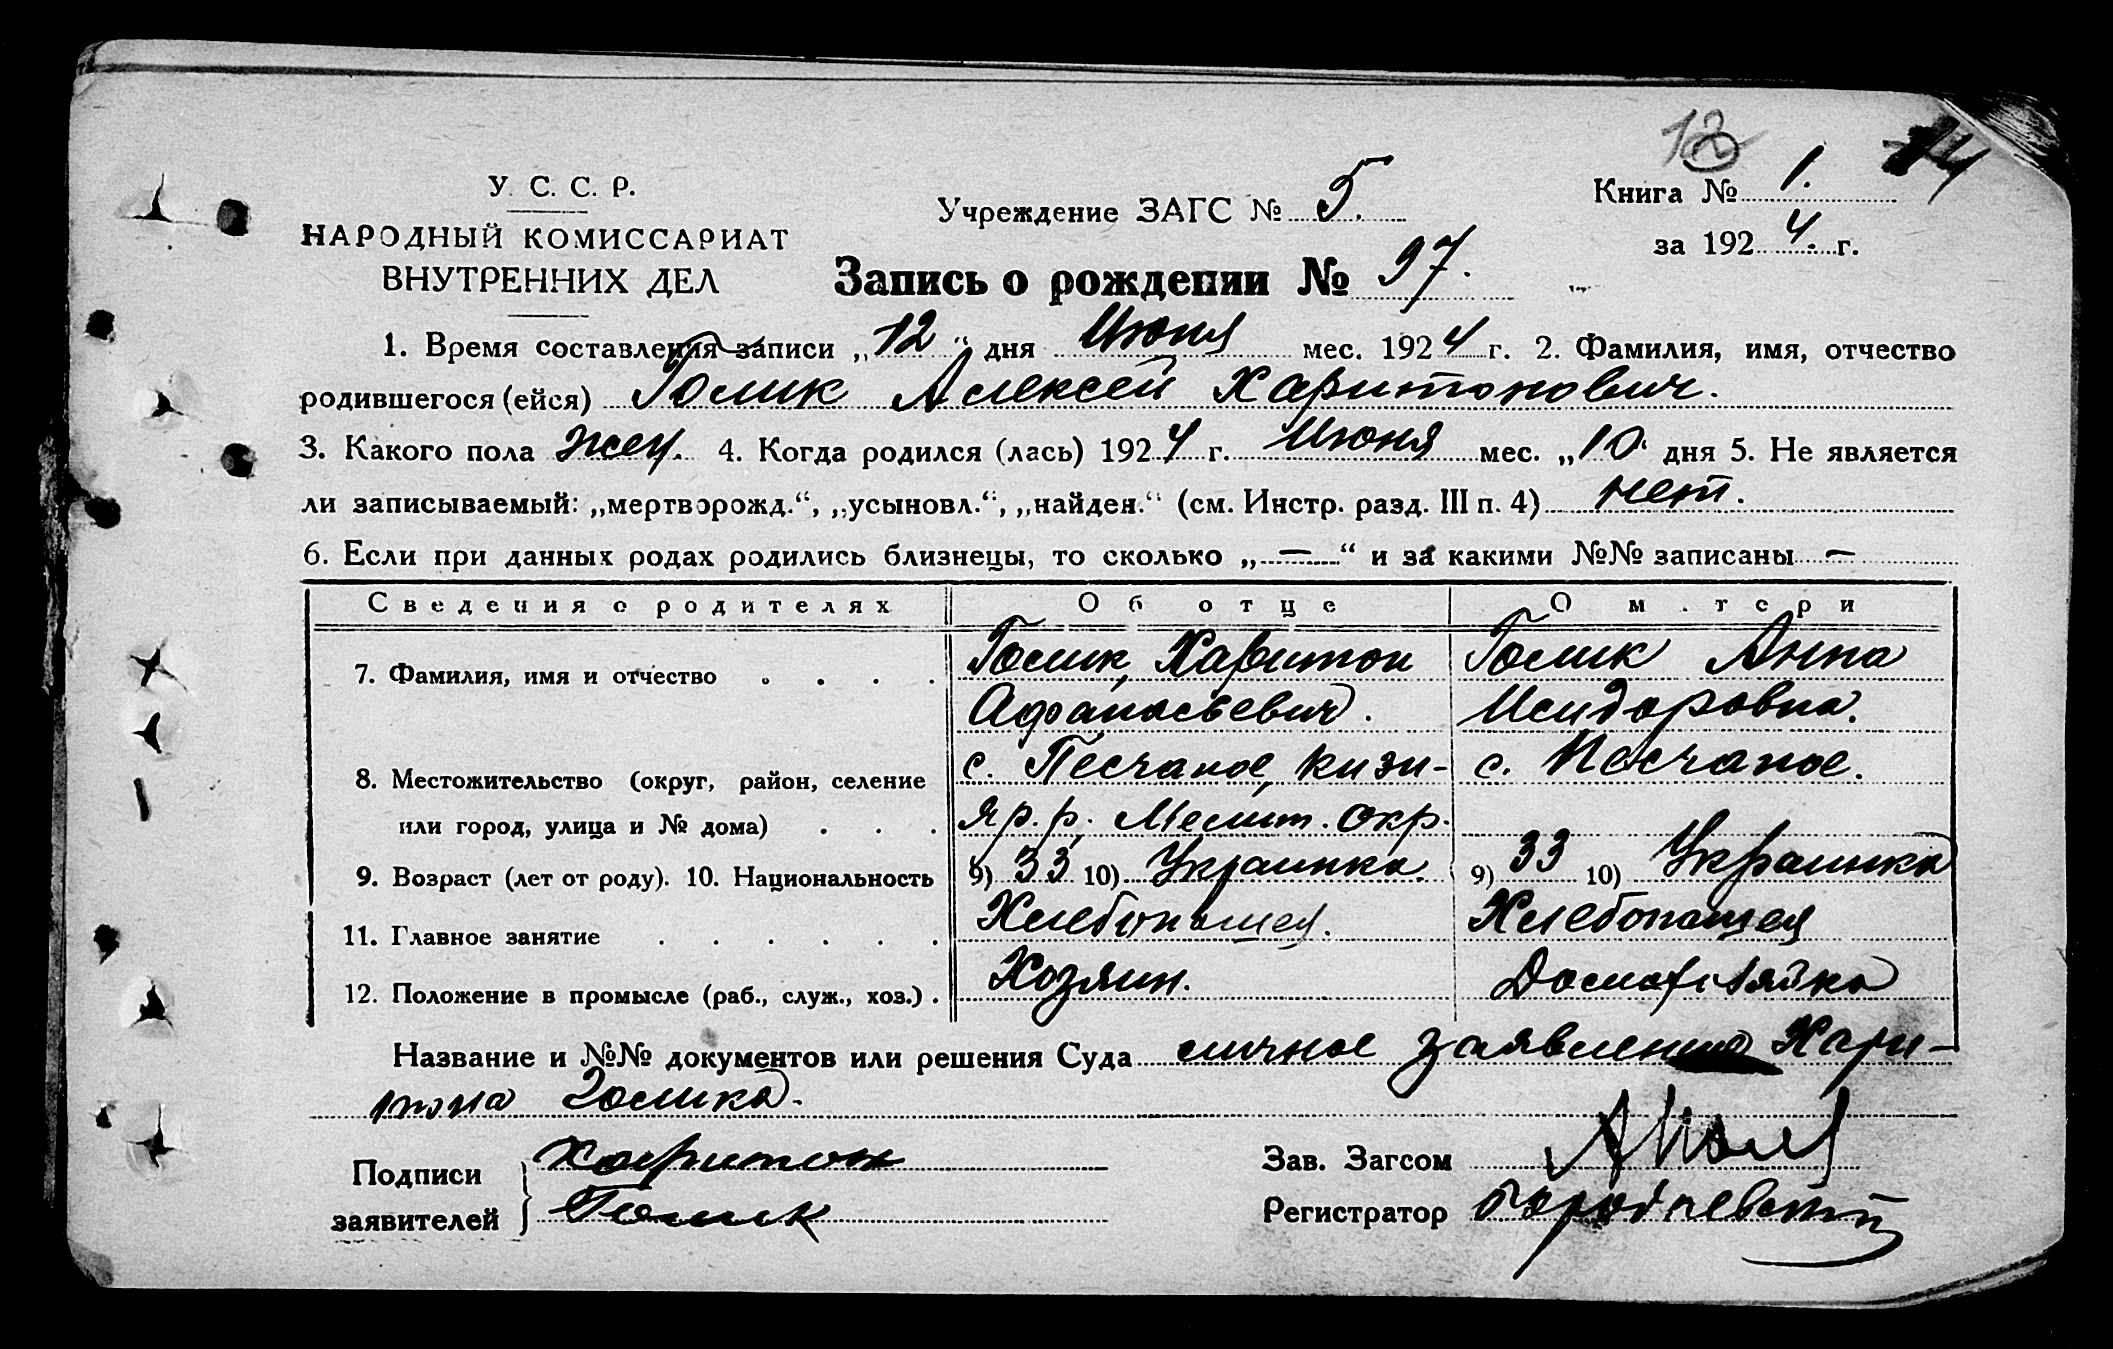 12 14
У. С. С. Р.
НАРОДНЫЙ КОМИССАРИАТ
ВНУТРЕННИХ ДЕЛ
Учреждение ЗАГС № 5.
Книга № 1.
за 1924. г.
Запись о рождении № 97.
1. Время составления записи „12“ дня Июня мес. 1924 г. 2. Фамилия, имя, отчество
родившегося (ейся) Голик Алексей Харитонович.
3. Какого пола жен. 4. Когда родился (лась) 1924 г. Июня мес. „10“ дня 5. Не является
ли записываемый: „мертворожд.“, „усыновл.“, „найден.“ (см. Инстр. разд. III п. 4) нет.
6. Если при данных родах родились близнецы, то сколько „—“ и за какими №№ записаны —
Сведения о родителях Об отце О матери
7. Фамилия, имя и отчество Голик, Харитон Голик Анна
Афанасьевич. Исидоровна.
8. Местожительство (округ, район, селение с. Песчаное, Кизи- с. Песчаное.
или город, улица и № дома) яр. р. Мелит. Окр.
9. Возраст (лет от роду). 10. Национальность 9) 33 10) Украинка 9) 33 10) Украинка
11. Главное занятие Хлебопашец. Хлебопашец
12. Положение в промысле (раб., служ., хоз.) Хозяин. Домохозяйка
Название и №№ документов или решения Суда личное заявление Хари-
тона Голика.
Подписи Харитон Зав. Загсом
заявителей Голик Регистратор